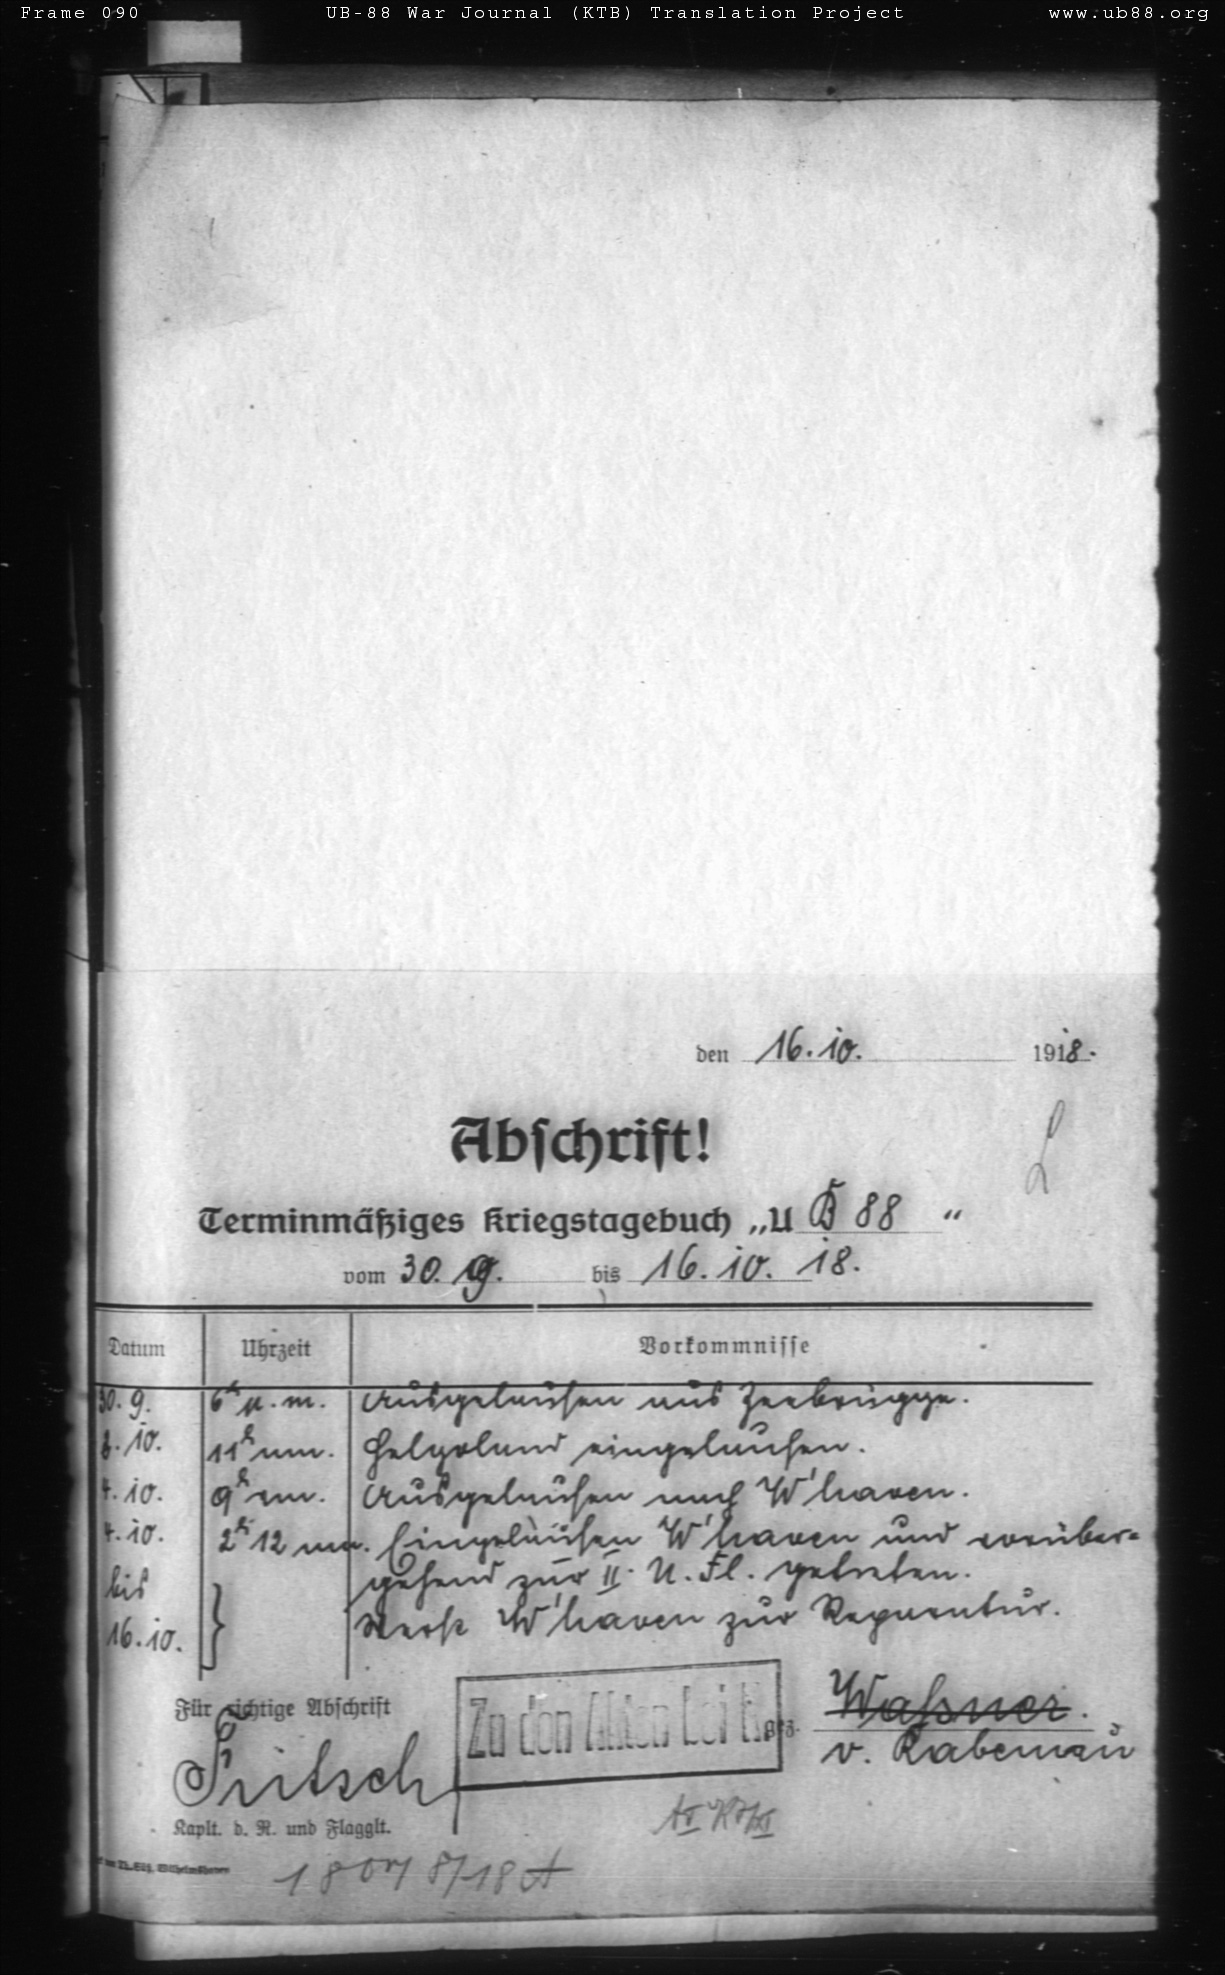 Frame 090 UB-88 War Journal (KTB) Translation Project www.ub88.org
den 16.10. 1918.
Abschrift!
L
Terminmäßiges Kriegstagebuch „U B 88 "
vom 30. 9. bis 16. 10. 18.
Datum Uhrzeit Vorkommnisse
30. 9. 6h n.m. Ausgelaufen aus Zeebrügge.
3. 10. 11h nm. Helgoland eingelaufen.
4. 10. 9h vm. Ausgelaufen nach W'haven.
4. 10. 2h 12 nm. Eingelaufen W'haven und vorüber=
bis gehend zur II. U. Fl. getreten.
16. 10. } Werft W'haven zur Reparatur.
Für richtige Abschrift Zu den Akten bei gez. Waßner.
v. Rabenau
Fritsch
Kaplt. d. R. und Flagglt.
Wilhelmshaven